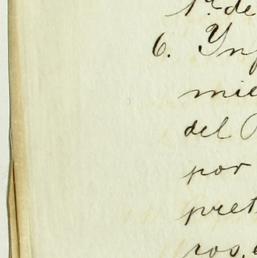 1º de
6. Inf
mie
del
por
pret
ros,